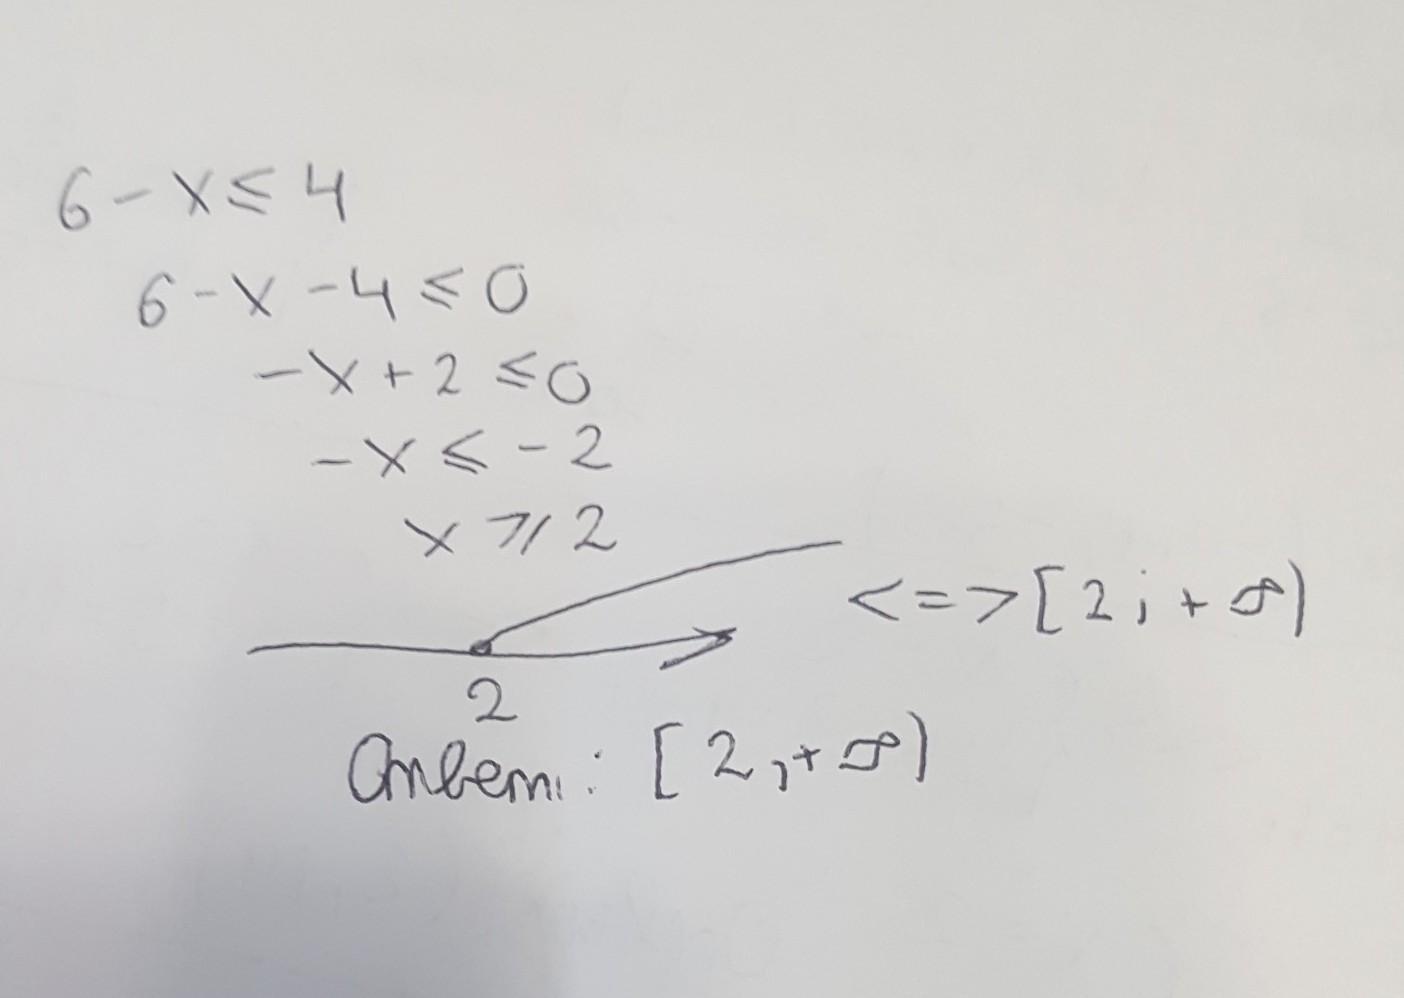 6 - x ≤ 4
6 - x - 4 ≤ 0
- x + 2 ≤ 0
- x ≤ - 2
x ≥ 2
<=> [ 2 ; + ∞ )
2
Ответ: [ 2 ; + ∞ )